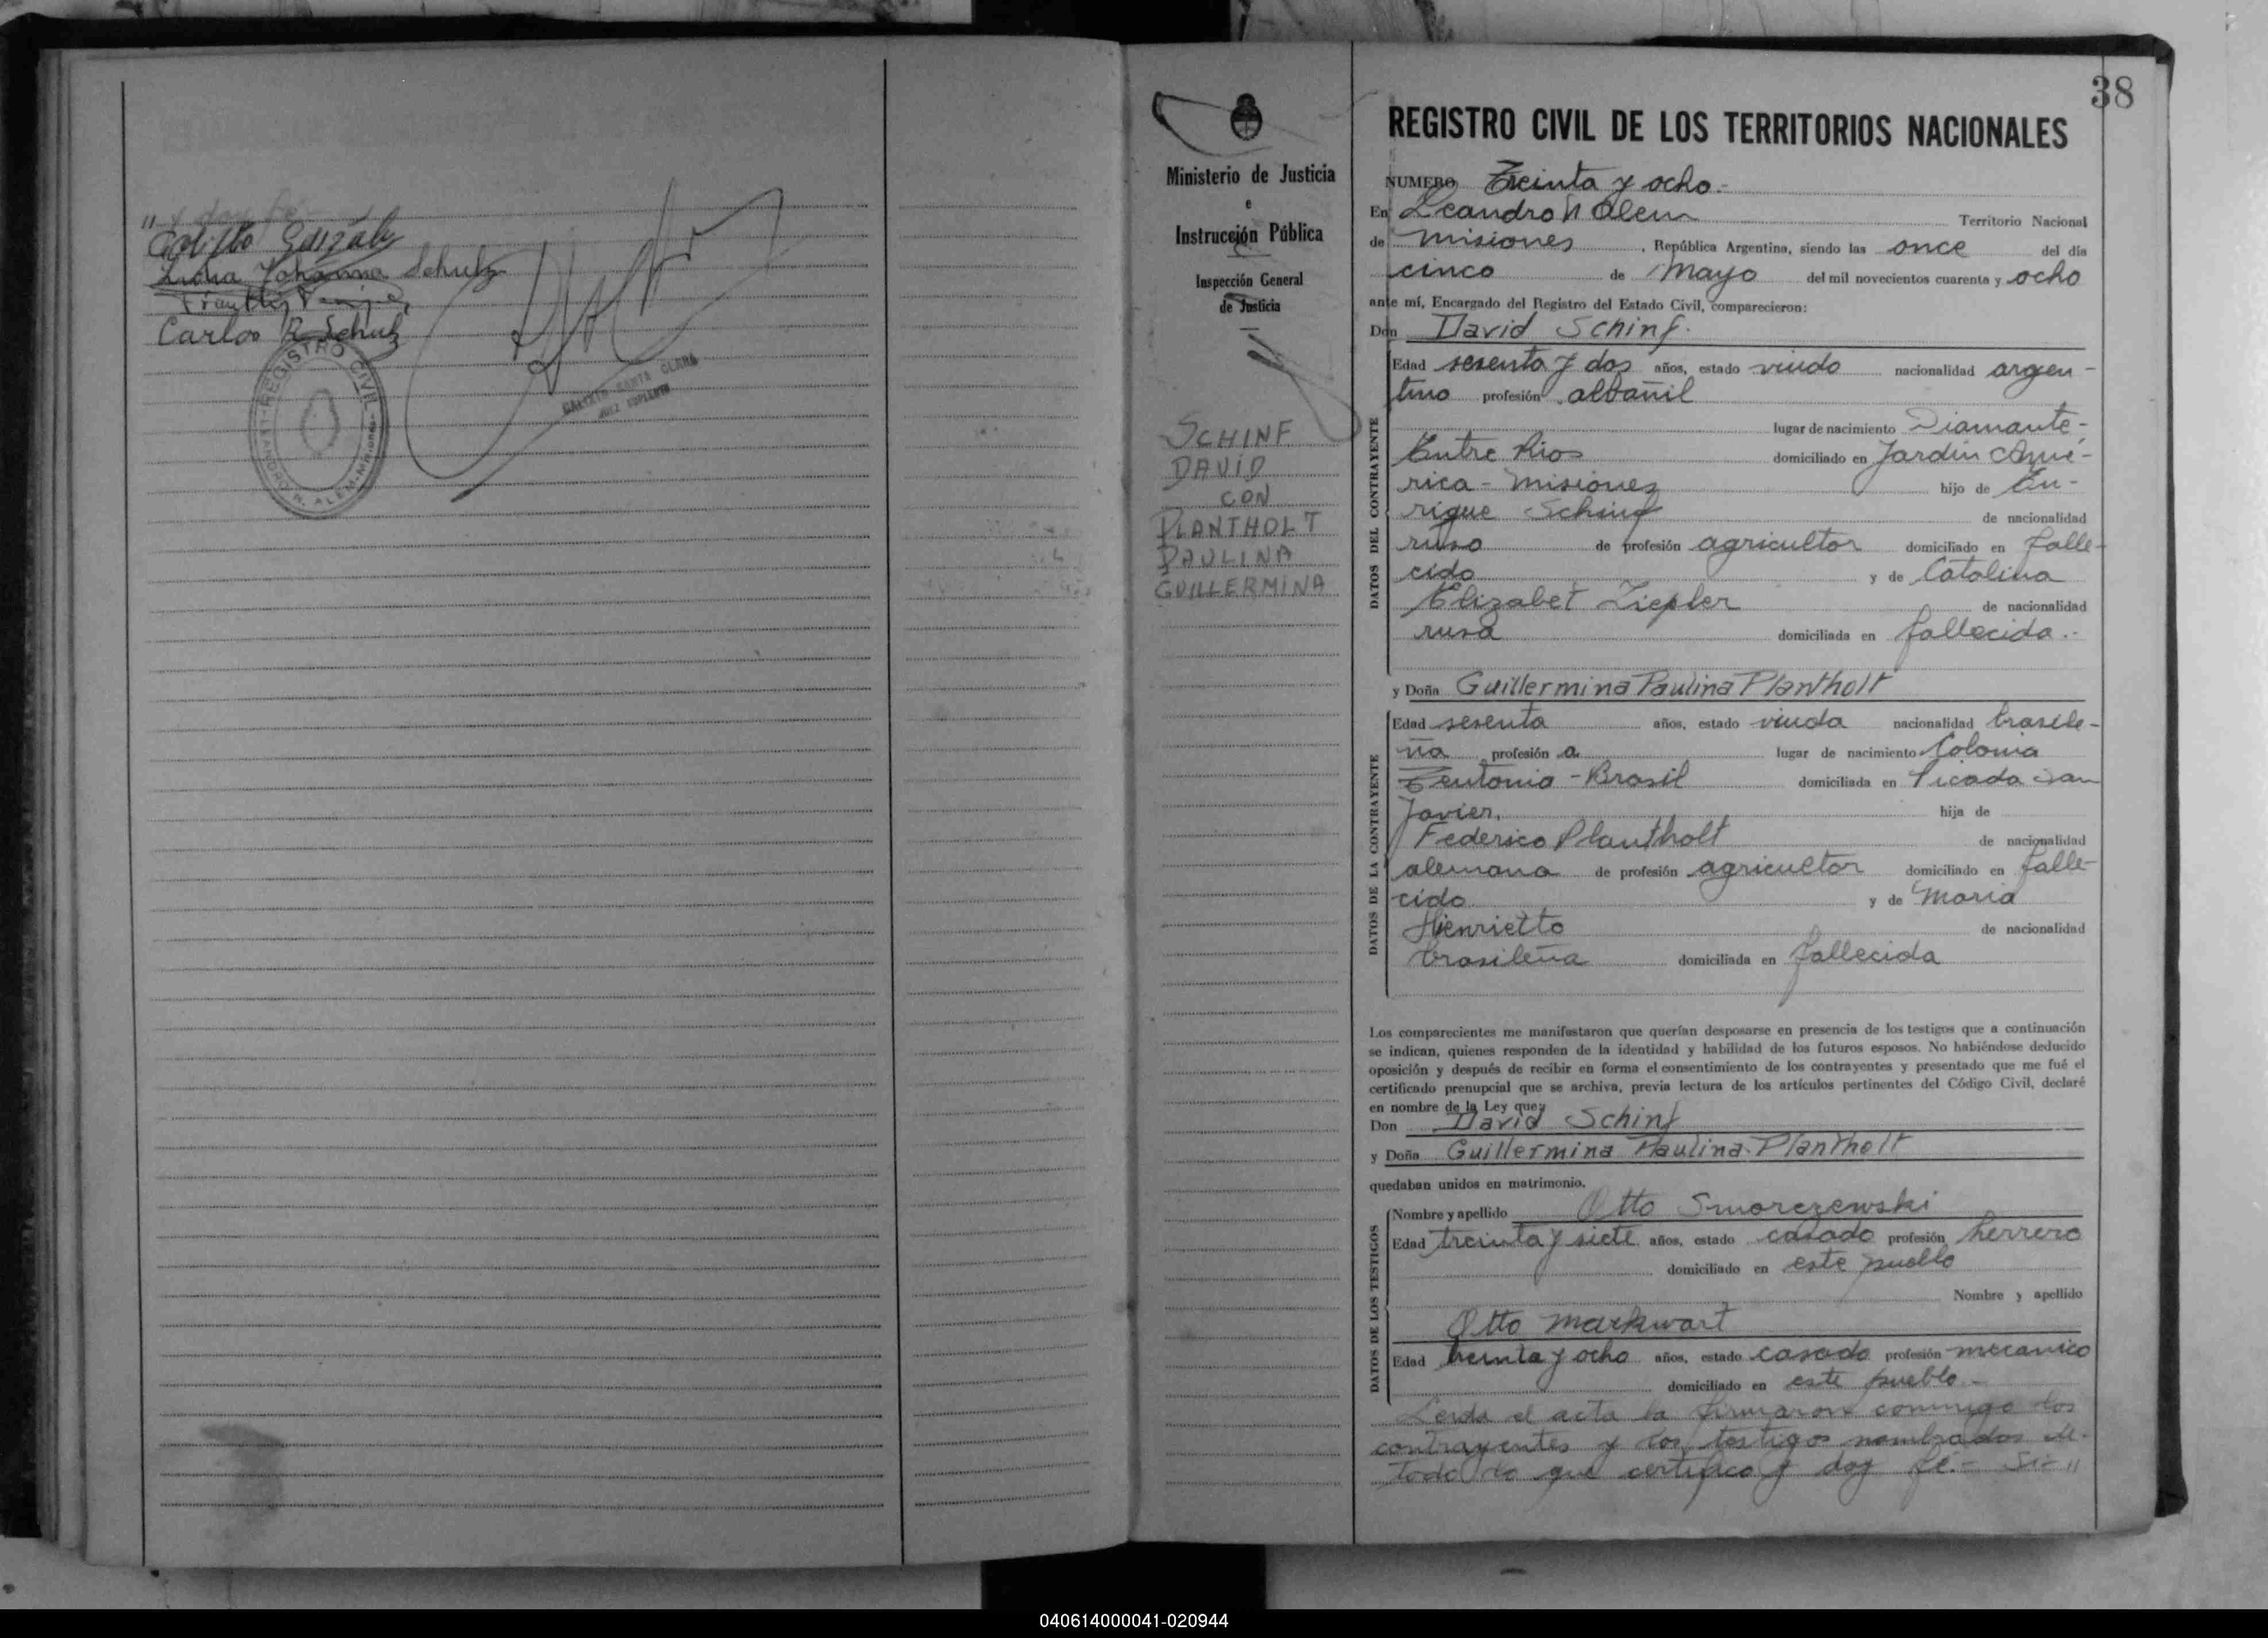 " y doy fe
Lidia Johanna Schulz
Carlos R. Schulz
REGISTRO CIVIL
LEANDRO N. ALEM - Misiones
CALIXTO SANTA CLARA
JUEZ SUPLENTE
Ministerio de Justicia
e
Instrucción Pública
Inspección General
de Justicia
SCHINF
DAVID
CON
PLANTHOLT
PAULINA
GUILLERMINA
38
REGISTRO CIVIL DE LOS TERRITORIOS NACIONALES
NUMERO Treinta y ocho.-
En Leandro N Alem Territorio Nacional
de Misiones, República Argentina, siendo las once del día
cinco de Mayo del mil novecientos cuarenta y ocho
ante mí, Encargado del Registro del Estado Civil, comparecieron:
Don David Schinf.
DATOS DEL CONTRAYENTE
Edad sesenta y dos años, estado viudo nacionalidad argen-
tino profesión albañil
lugar de nacimiento Diamante-
Entre Rios domiciliado en Jardín Amé-
rica - Misiones hijo de En-
rique Schinf de nacionalidad
ruso de profesión agricultor domiciliado en falle-
cido y de Catalina
Elizabet Ziegler de nacionalidad
rusa domiciliada en fallecida.-
y Doña Guillermina Paulina Plantholt
DATOS DE LA CONTRAYENTE
Edad sesenta años, estado viuda nacionalidad brasile-
ña profesión a lugar de nacimiento Colonia
Teutonia - Brasil domiciliada en Picada San
Javier, hija de
Federico Plantholt de nacionalidad
alemana de profesión agricultor domiciliado en falle-
cido y de Maria
Henrietto de nacionalidad
brasileña domiciliada en fallecida
Los comparecientes me manifestaron que querían desposarse en presencia de los testigos que a continuación
se indican, quienes responden de la identidad y habilidad de los futuros esposos. No habiéndose deducido
oposición y después de recibir en forma el consentimiento de los contrayentes y presentado que me fué el
certificado prenupcial que se archiva, previa lectura de los artículos pertinentes del Código Civil, declaré
en nombre de la Ley que:
Don David Schinf
y Doña Guillermina Paulina Plantholt
quedaban unidos en matrimonio.
DATOS DE LOS TESTIGOS
Nombre y apellido Otto Smorczewski
Edad treinta y siete años, estado casado profesión herrero
domiciliado en este pueblo
Nombre y apellido
Otto Markwart
Edad treinta y ocho años, estado casado profesión mecanico
domiciliado en este pueblo -
Leida el acta la firmaron conmigo los
contrayentes y los testigos nombrados de
todo lo que certifico y doy fé.-
040614000041-020944